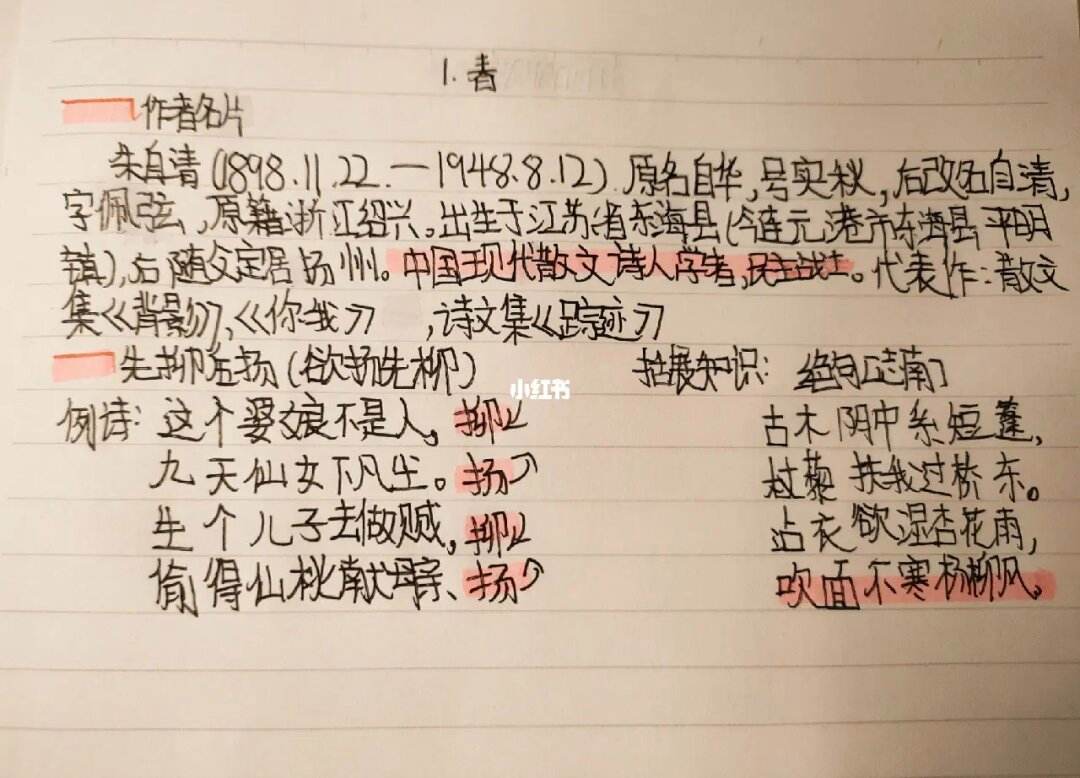 1.春
作者名片
朱自清(1898.11.22.—1948.8.12)原名自华,号实秋,后改名自清,
字佩弦,原籍浙江绍兴。出生于江苏省东海县(今连元港市东海县平明
镇),后随父定居扬州。中国现代散文诗人学者,民主战士。代表作:散文
集《背影》,《你我》 ,诗文集《踪迹》
先抑后扬(欲扬先抑) 拓展知识: 绝句[志南]
例诗:这个婆娘不是人,抑↓ 古木阴中系短蓬,
九天仙女下凡尘。扬↗ 杖藜扶我过桥东。
生个儿子去做贼,抑↓ 沾衣欲湿杏花雨,
偷得仙桃献母亲、扬↗ 吹面不寒杨柳风。
小红书